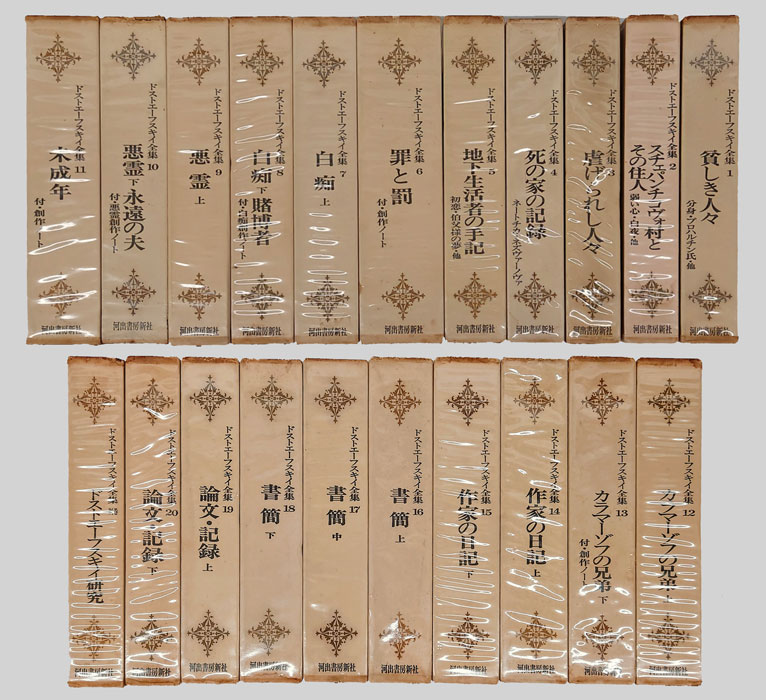 ドストエーフスキイ全集 1
貧しき人々
分身・プロハルチン氏・他
河出書房新社
ドストエーフスキイ全集 2
スチェパンチコヴォ村と
その住人
弱い心・白夜・他
河出書房新社
ドストエーフスキイ全集 3
虐げられし人々
河出書房新社
ドストエーフスキイ全集 4
死の家の記録
ネートチカ・ネズヴァーノヴァ
河出書房新社
ドストエーフスキイ全集 5
地下生活者の手記
初恋・伯父様の夢・他
河出書房新社
ドストエーフスキイ全集 6
罪と罰
付・創作ノート
河出書房新社
ドストエーフスキイ全集 7
白痴 上
河出書房新社
ドストエーフスキイ全集 8
白痴 下 賭博者
付・白痴創作ノート
河出書房新社
ドストエーフスキイ全集 9
悪霊 上
河出書房新社
ドストエーフスキイ全集 10
悪霊 下 永遠の夫
付・悪霊創作ノート
河出書房新社
ドストエーフスキイ全集 11
未成年
付・創作ノート
河出書房新社
ドストエーフスキイ全集 12
カラマーゾフの兄弟 上
河出書房新社
ドストエーフスキイ全集 13
カラマーゾフの兄弟 下
付・創作ノート
河出書房新社
ドストエーフスキイ全集 14
作家の日記 上
河出書房新社
ドストエーフスキイ全集 15
作家の日記 下
河出書房新社
ドストエーフスキイ全集 16
書簡 上
河出書房新社
ドストエーフスキイ全集 17
書簡 中
河出書房新社
ドストエーフスキイ全集 18
書簡 下
河出書房新社
ドストエーフスキイ全集 19
論文・記録 上
河出書房新社
ドストエーフスキイ全集 20
論文・記録 下
河出書房新社
ドストエーフスキイ全集
ドストエーフスキイ研究
河出書房新社